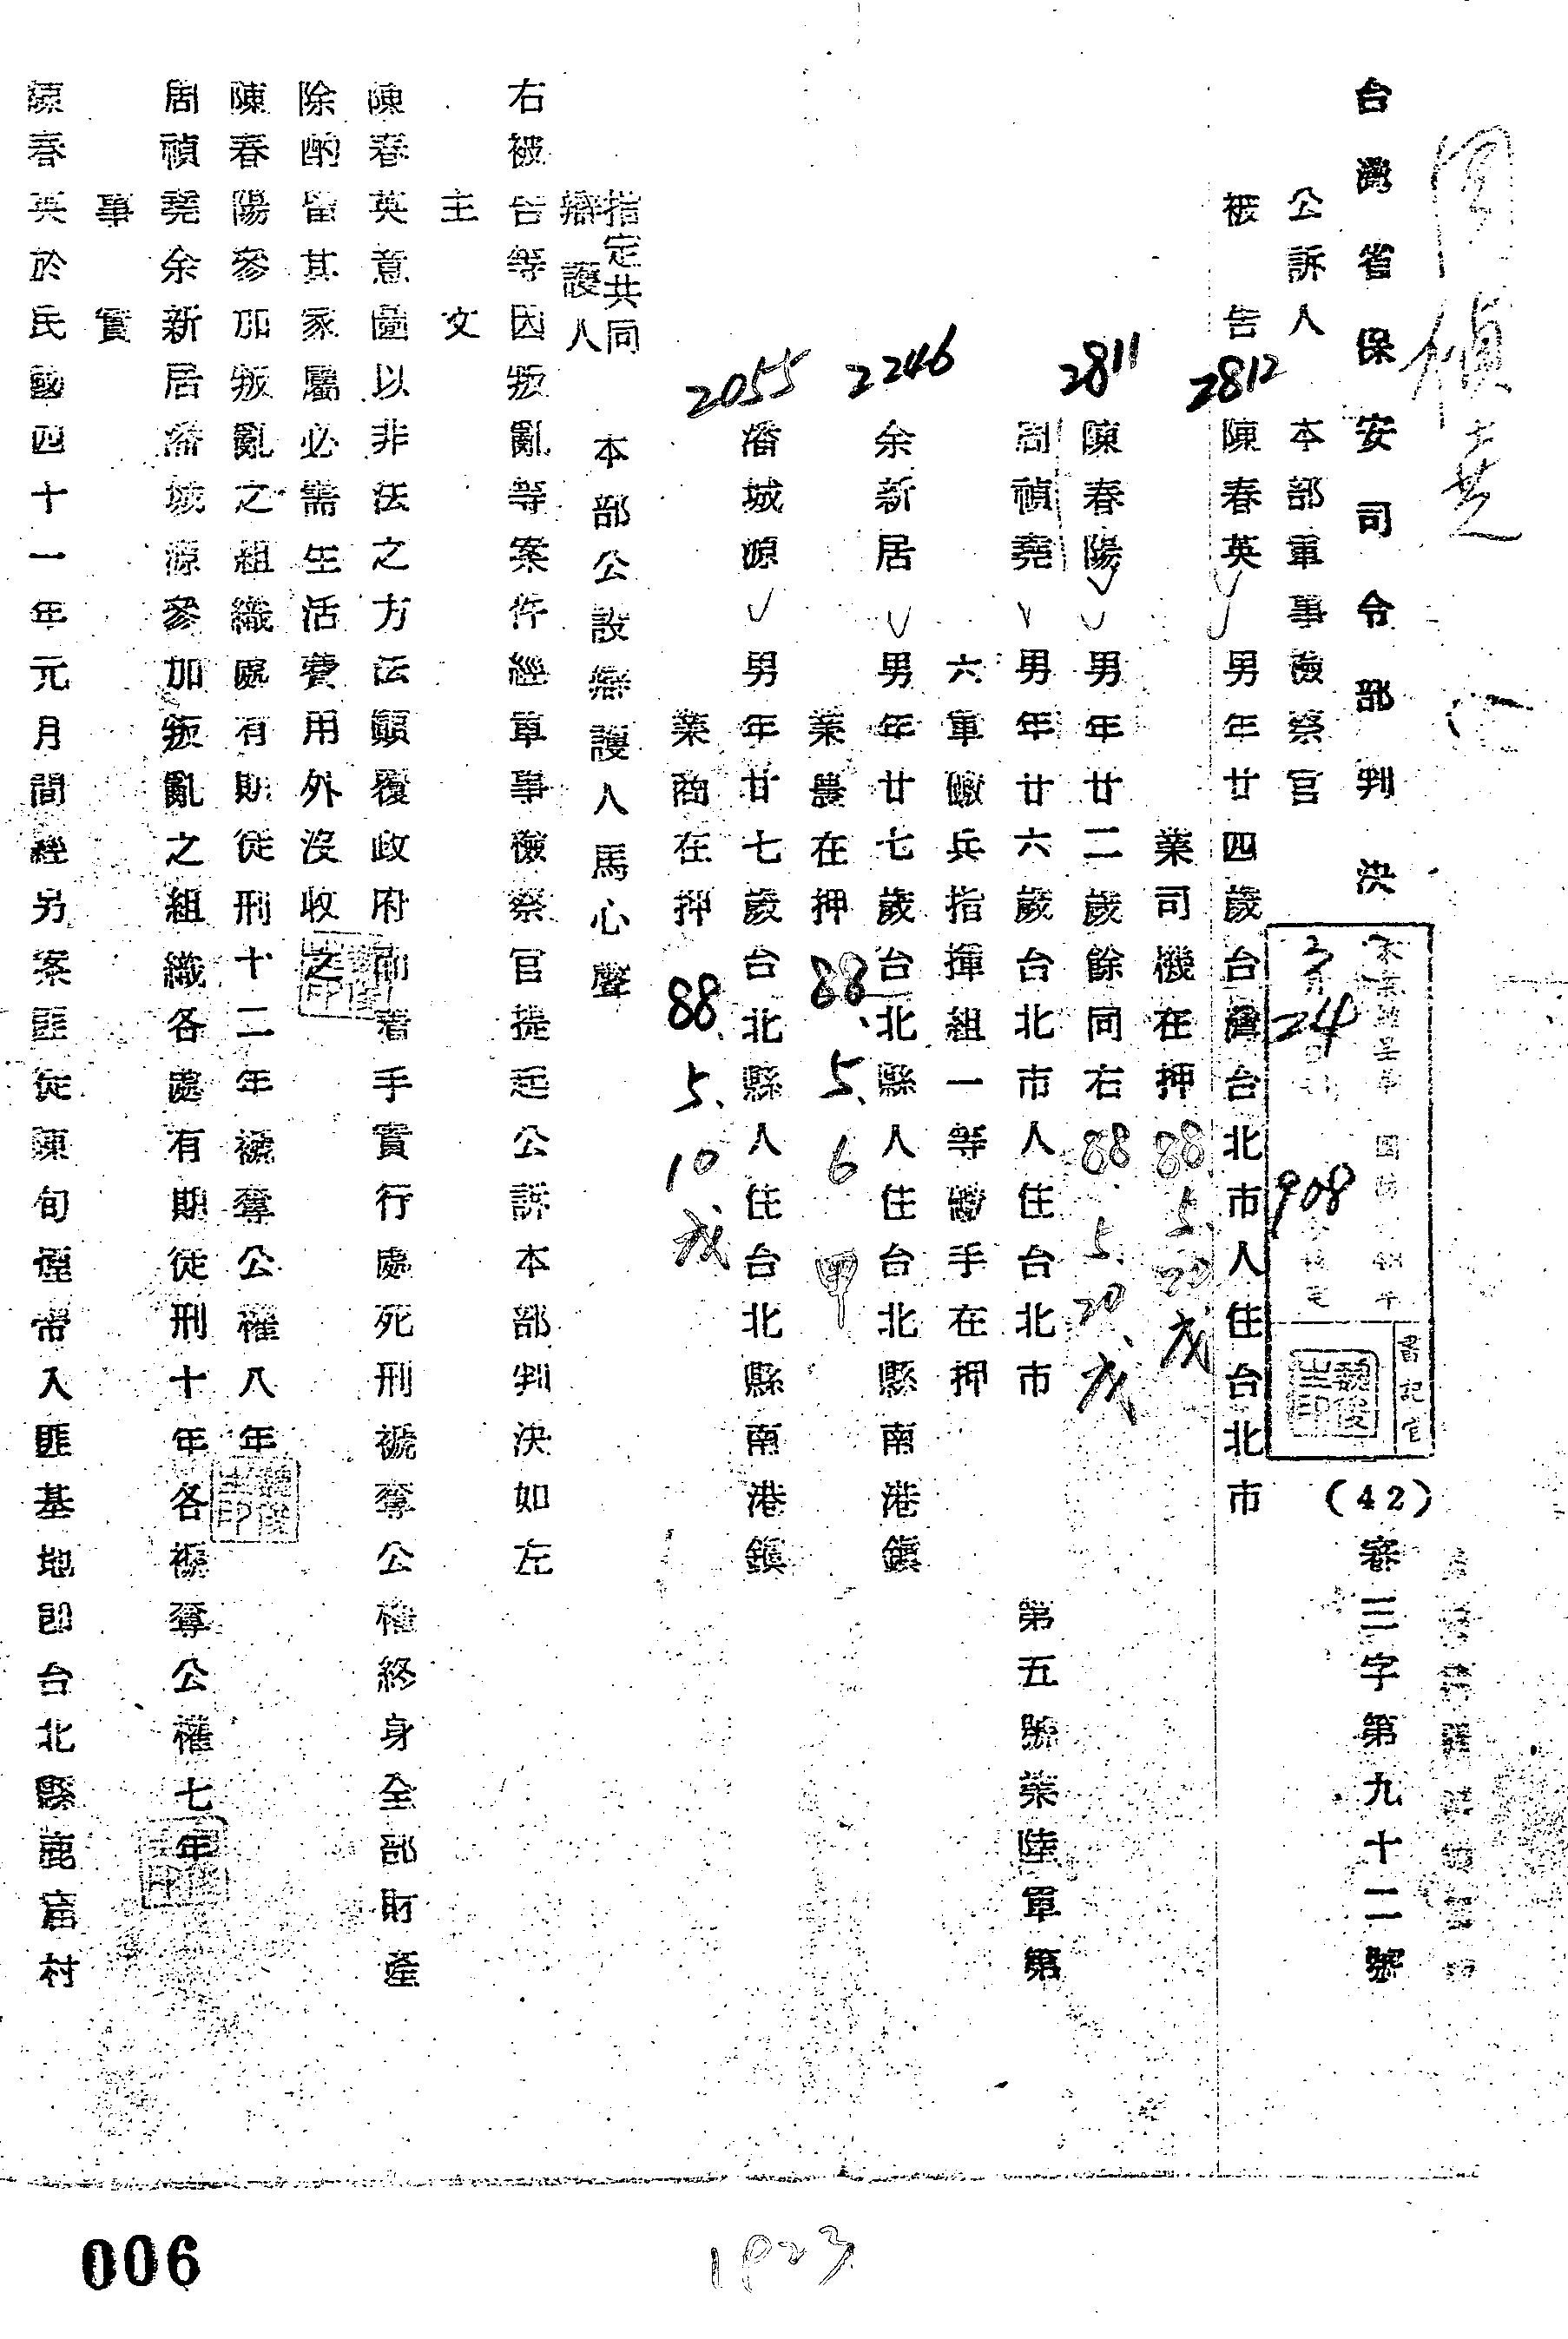 周
台灣省保安司令部判決
(42)審三字第九十二號
公訴人 本部軍事檢察官
被告 陳春英 男年廿四歲台灣台北市人住台北市
業司機在押
陳春陽 男年廿二歲餘同右
周禎堯 男年廿六歲台北市人住台北市 第五號業陸軍第
六軍 兵指揮組一等 手在押
余新居 男年廿七歲台北縣人住台北縣南港鎮
業農在押
潘城源 男年廿七歲台北縣人住台北縣南港鎮
業商在押
指定共同
辯護人 本部公設辯護人馬心聲
右被告等因叛亂等案件經軍事檢察官提起公訴本部判決如左
主文
陳春英意圖以非法之方法顛覆政府而着手實行處死刑褫奪公權終身全部財產
除酌留其家屬必需生活費用外沒收之
陳春陽參加叛亂之組織處有期徒刑十二年褫奪公權八年
周禎堯余新居潘城源參加叛亂之組織各處有期徒刑十年各褫奪公權七年
事實
陳春英於民國四十一年元月間經另案匪徒陳旬煙帶入匪基地即台北縣鹿窟村
2812
2811
2246
2055
88.5.20.戌
88.5.20、戌
88、5.6 甲
88.5、10戌
3
24
908
書記官
006
1923